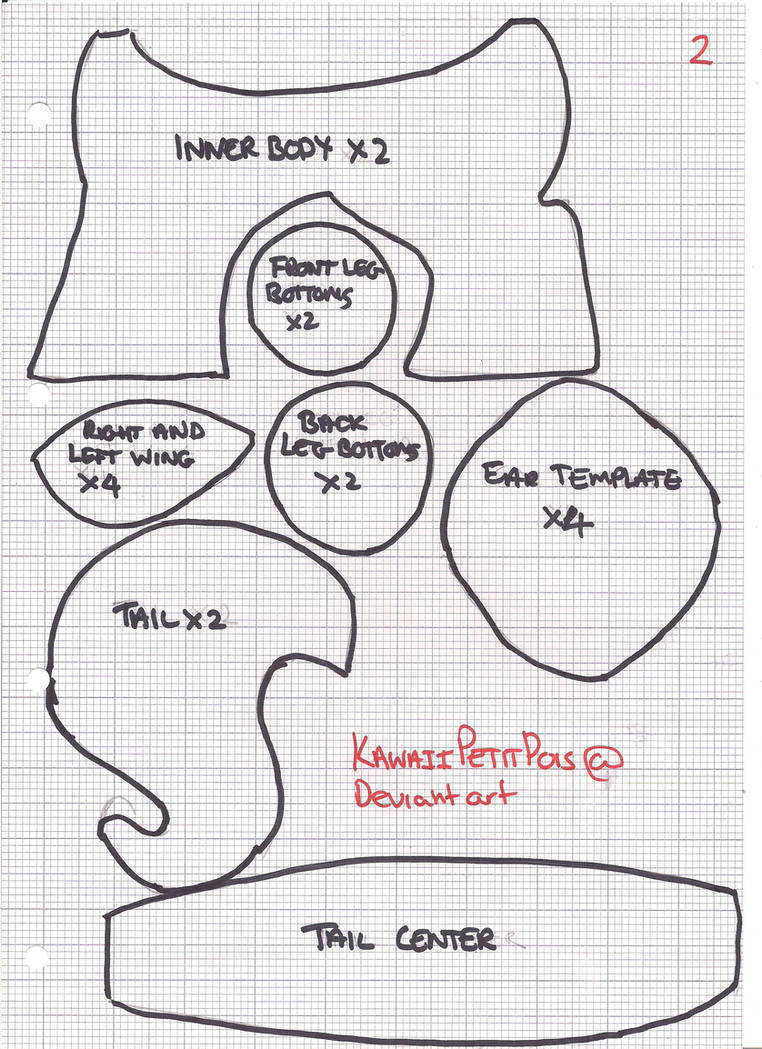 2
INNER BODY X2
FRONT LEG
BOTTOMS
X2
RIGHT AND
LEFT WING
X4
BACK
LEG BOTTOMS
X2
EAR TEMPLATE
X4
TAIL X2
KAWAIIPETITPOIS@
Deviantart
TAIL CENTER